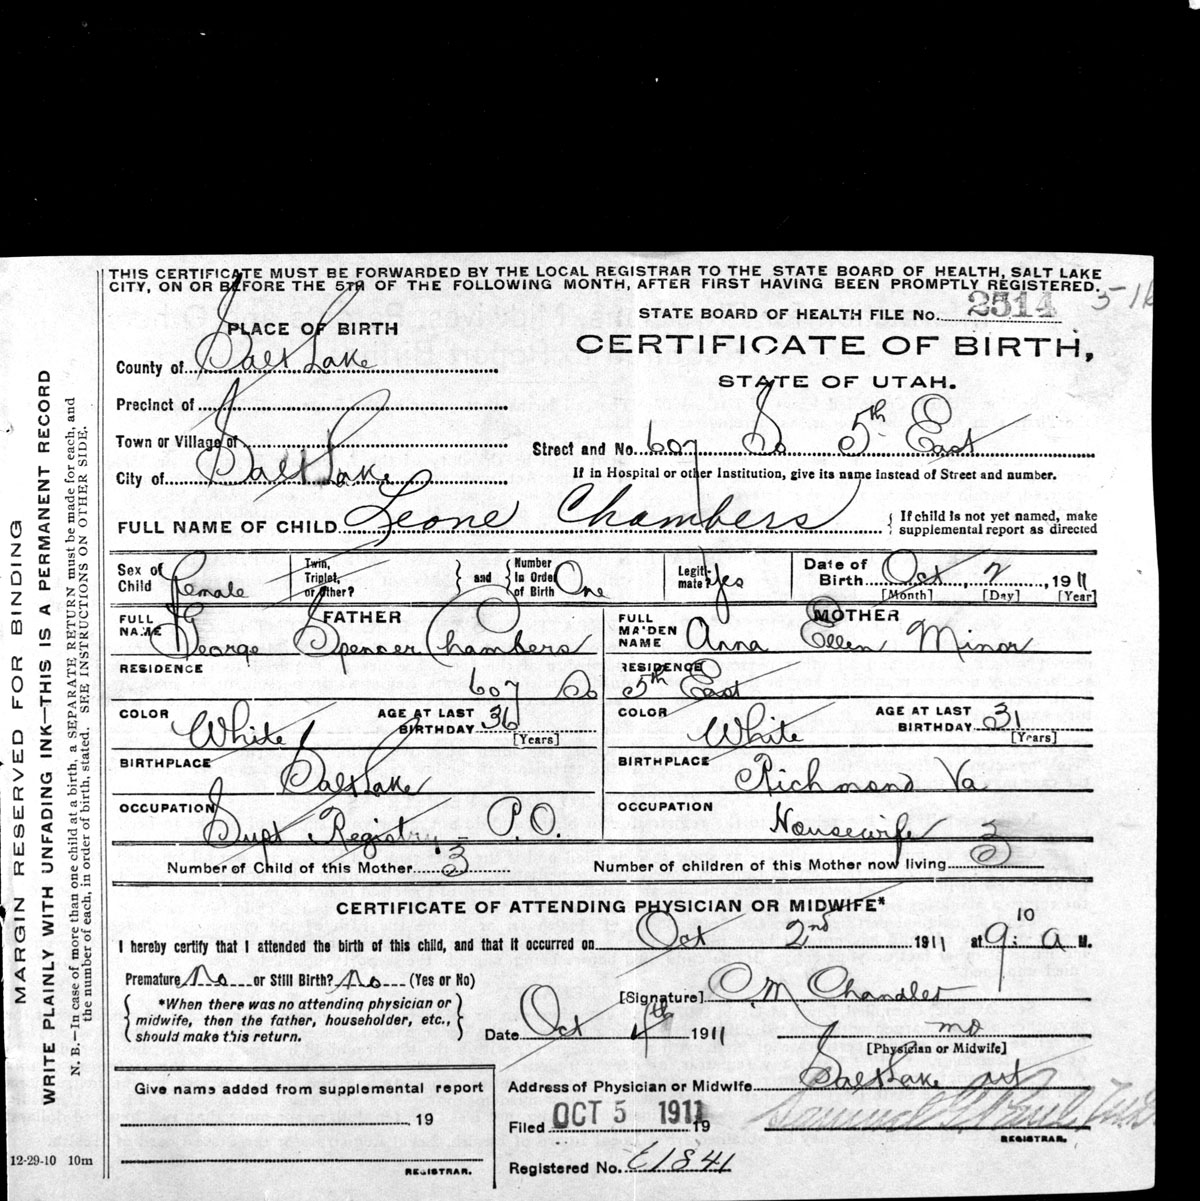 THIS CERTIFICATE MUST BE FORWARDED BY THE LOCAL REGISTRAR TO THE STATE BOARD OF HEALTH, SALT LAKE
CITY, ON OR BEFORE THE 5TH OF THE FOLLOWING MONTH, AFTER FIRST HAVING BEEN PROMPTLY REGISTERED.
STATE BOARD OF HEALTH FILE No. 2514
CERTIFICATE OF BIRTH,
STATE OF UTAH.
PLACE OF BIRTH
County of Salt Lake
Precinct of
Town or Village of
City of Salt Lake
Street and No. 607 So 5th East
If in Hospital or other Institution, give its name instead of Street and number.
FULL NAME OF CHILD Leone Chambers
If child is not yet named, make
supplemental report as directed
Sex of Child Female
Twin, Triplet, or other? and Number in Order of Birth One
Legitimate? Yes
Date of Birth Oct 2, 1911
[Month] [Day] [Year]
FATHER
FULL NAME George Spencer Chambers
MOTHER
FULL MAIDEN NAME Anna Ellen Minor
RESIDENCE RESIDENCE
607 So 5th East
COLOR White AGE AT LAST BIRTHDAY 36 [Years]
COLOR White AGE AT LAST BIRTHDAY 31 [Years]
BIRTHPLACE Salt Lake
BIRTHPLACE Richmond Va
OCCUPATION Supt Registry - P.O.
OCCUPATION Housewife
Number of Child of this Mother 3
Number of children of this Mother now living 3
CERTIFICATE OF ATTENDING PHYSICIAN OR MIDWIFE*
I hereby certify that I attended the birth of this child, and that it occurred on Oct 2nd 1911 at 9:10 a M.
Premature No or Still Birth? No (Yes or No)
*When there was no attending physician or
midwife, then the father, householder, etc.,
should make this return.
[Signature] C M Chandler
Date Oct 4th 1911 MD
[Physician or Midwife]
Give name added from supplemental report
19
REGISTRAR.
Address of Physician or Midwife Salt Lake
Filed OCT 5 1911 19
REGISTRAR.
Registered No. E1841
12-29-10 10m
MARGIN RESERVED FOR BINDING
WRITE PLAINLY WITH UNFADING INK—THIS IS A PERMANENT RECORD
N. B.—In case of more than one child at a birth, a SEPARATE RETURN must be made for each, and
the number of each, in order of birth, stated. SEE INSTRUCTIONS ON OTHER SIDE.